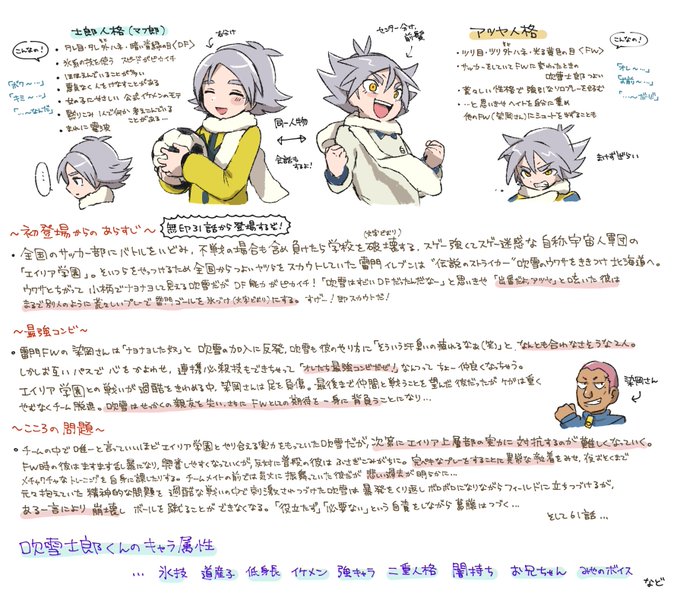 士郎人格(マフ郎)
こんなの!
・タレ目・タレ外ハネ・暗い
・氷系の技を使う スピードがピカイチ
・ほほえんでいることが多い
・悪気なく人をけなすことがある
・せめるにやさしい 公式イケメンのモテ
・黙りこみ 1人で何か考えこんでいることがある…
・まれに電波
「ボク〜…」
「キミ〜…」
「…なんだ」
右分け
同一人物
会話もするよ!
センター分け、前髪
アツヤ人格
こんなの!
・ツリ目・ツリ外ハネ・光る黄目の目〈FW〉
・サッカーをしていてFWに変わったときの吹雪士郎つよい
・荒々しい性格で強引なプレーを好む
・…と思いきや ヘイトを自分に集め 他のFW(染岡さん)にシュートさせることも
「オレ〜…」
まけずぎらい
…
〜初登場からのあらすじ〜
無印31話から登場するぞ!
・全国のサッカー部にバトルをいどみ、不戦の場合も含め負けたら学校を破壊する、スゲー強くてスゲー迷惑な自称宇宙人軍団の
(文字どおり)
「エイリア学園」。そいつらをやっつけるため全国からつよいヤツらをスカウトしていた雷門イレブンは"伝説のストライカー"吹雪のウワサをききつけ北海道へ。
ウワサとちがって小柄でナヨナヨして見える吹雪だがDF能力がピカイチ!「吹雪はすごいDFだったんだな〜」と思いきや「出番だよ、アツヤ」と呟いた彼は
まるで別人のように荒々しいプレーで雷門ゴールを氷づけ(文字どおり)にする。すげー!即スカウトだ!
〜最強コンビ〜
・雷門FWの染岡さんは「ナヨナヨしたヤツ」と吹雪の加入に反発、吹雪も彼のやり方に「そういう汗臭いの 萎えるなあ(笑)」と、なんとも合わなさそうな2人。
しかしお互いパスで心をかよわせ、連携必殺技もできちゃって「オレたち最強コンビだぜ!」なんつってちょー仲良くなっちゃう。
エイリア学園との戦いが過酷をきわめる中、染岡さんは足を負傷。最後まで仲間と戦うことを望んだ彼だったがケガは重く
やむなくチーム脱退。吹雪はせっかくの親友を失い、さらにFWとしての期待を一身に背負うことになり…
染岡さん
〜こころの問題〜
・チームの中で唯一と言っていいほどエイリア学園とやり合える実力をもっていた吹雪だが、次第にエイリア上層部の実力に対抗するのが難しくなっていく。
FW時の彼はますます乱暴になり、興奮しやすくなっていくが、反対に普段の彼はふさぎこみがちに。完ぺきなプレーをすることに異常な執着をみせ、夜おそくまで
メチャクチャなトレーニングを自身に課したりする。チームメイトの前では気丈に振舞っていた彼だが悲しい過去が明らかに…
元々抱えていた精神的な問題を過酷な戦いの中で刺激されつづけた吹雪は暴発をくり返しボロボロになりながらフィールドに立ちつづけるが、
ある一言により崩壊し ボールを蹴ることができなくなる。「役立たず」「必要ない」という自責をしながら葛藤はつづく…
そして61話…
吹雪士郎くんのキャラ属性
… 氷技 道産子 低身長 イケメン 強キャラ 二重人格 闇持ち お兄ちゃん みやのボイス
など